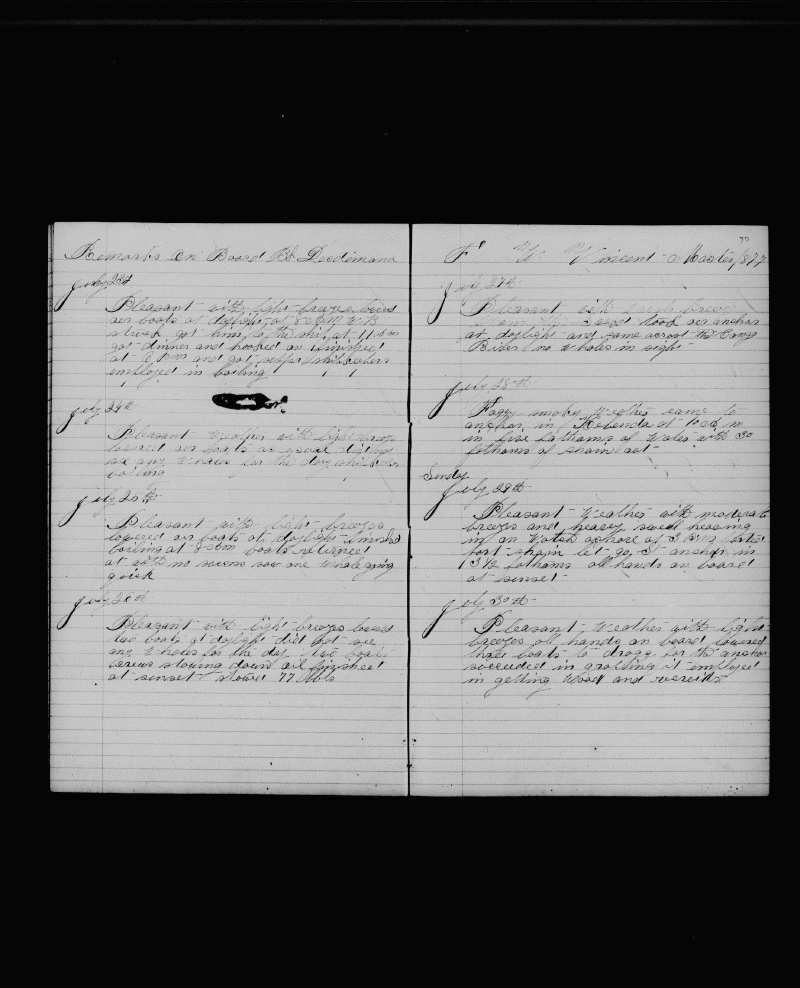 Remarks on Board Bk Desdemona
july 23d
Pleasant with light breezes lowerd
our boats at daylight at 8 a m W B
struck got him to the ship at 11 a m
got dinner and hooked on finished
at 6 P m and got supper
employed in boiling
july 24th
Pleasant Weather with light
lowered our boats as usual did not
see any Whales for the day
boiling
july 25th
Pleasant with light breezes
lowered our boats at daylight finished
boiling at boats returned
at no success saw one whale going
quick
july 26th
Pleasant with light breezes lowerd
two boats at daylight did not see
any Whales for the day two boats
crews stowing down oil finished
at sunset stowed 77 bbls
77
F W Vincent Master 1877
july 27th
Pleasant with breeze
took our anchor
at daylight and came across the Congo
River no Whales in sight
july 28th
Foggy smoky Weather came to
anchor in Kabenda at
in five fathoms of Water with 30
fathoms of chain out
Sunday
july 29th
Pleasant Weather with moderate
breezes and heavy swell heaving
in on Watch ashore at 3 parted
port chain let go S anchor in
3 1/2 fathoms all hands on board
at sunset
july 30th
Pleasant Weather with light
breezes all hands on board lowered
three boats to dragg for the anchor
in it employed
in getting Wood and